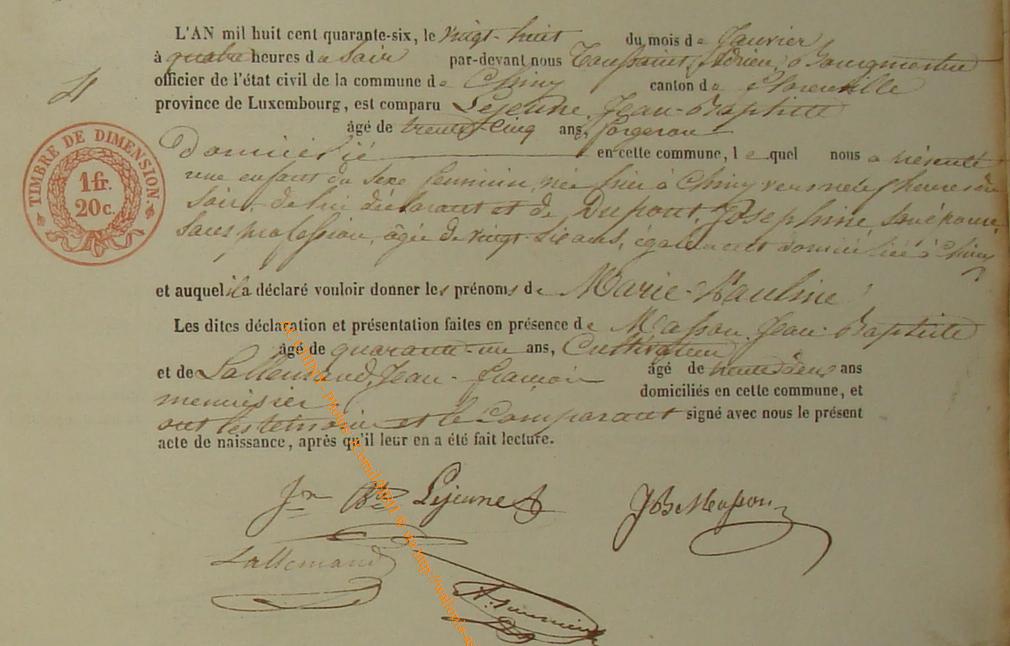 L'AN mil huit cent quarante-six, le vingt-huit du mois de Janvier
à quatre heures du soir par-devant nous Toussaint, Adrien, Bourgmestre
officier de l'état civil de la commune de Chiny canton de Florenville
province de Luxembourg, est comparu Lejeune, Jean-Baptiste
âgé de trente-cinq ans, forgeron
4
domicilié en cette commune, lequel nous a présenté
une enfant du sexe féminin, née hier à Chiny vers neuf heures du
soir, de lui déclarant et de Dupont, Josephine, son épouse,
sans profession, âgée de vingt-six ans, également domiciliée à Chiny
TIMBRE DE DIMENSION.
1 fr.
20 c.
et auquel il a déclaré vouloir donner les prénoms de Marie-Pauline
Les dites déclaration et présentation faites en présence de Masson, Jean-Baptiste
âgé de quarante-un ans, Cultivateur
et de Lallemand, Jean-françois âgé de trente deux ans
menuisier domiciliés en cette commune, et
ont les témoins et le Comparant signé avec nous le présent
acte de naissance, après qu'il leur en a été fait lecture.
Jn Bte Lejeune
JBMasson
Lallemand